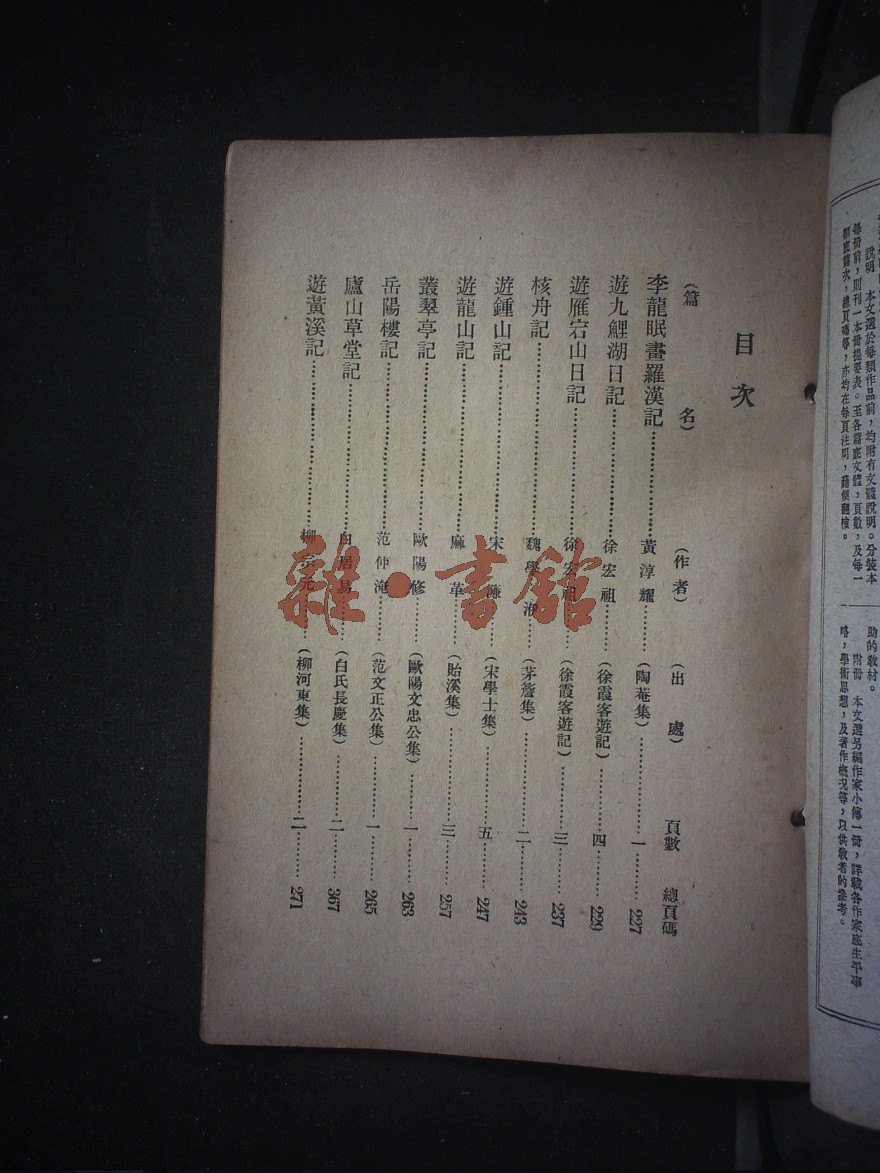 說明 本文選於每類作品前,均附有文體說明。分裝本
每冊前,則刊一本冊提要表。至各篇底文體,頁數,及每一
類底篇次,總頁碼等,亦均在每頁注明,藉便翻檢。
助的教材。
附冊 本文選另編作家小傳一冊,詳載各作家底生平事
略,學術思想,及著作概況等,以供教者的參考。
目次
(篇名) (作者) (出處) 頁數 總頁碼
李龍眠畫羅漢記……黃淳耀……(陶菴集)……一……227
遊九鯉湖日記……徐宏祖……(徐霞客遊記)……四……229
遊雁宕山日記……徐宏祖……(徐霞客遊記)……三……237
核舟記……魏學洢……(茅簷集)……二……243
遊鍾山記……宋濂……(宋學士集)……五……247
遊龍山記……麻革……(貽溪集)……三……257
叢翠亭記……歐陽修……(歐陽文忠公集)……一……263
岳陽樓記……范仲淹……(范文正公集)……一……265
廬山草堂記……白居易……(白氏長慶集)……二……367
遊黃溪記……柳宗元……(柳河東集)……二……271
雜·書館